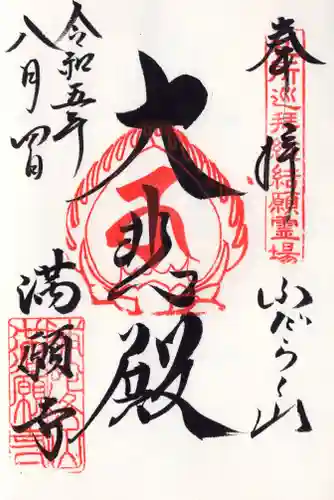 奉拝
ふどうく山
大悲殿
令和五年
八月四日
満願寺
巡拝
結願霊場